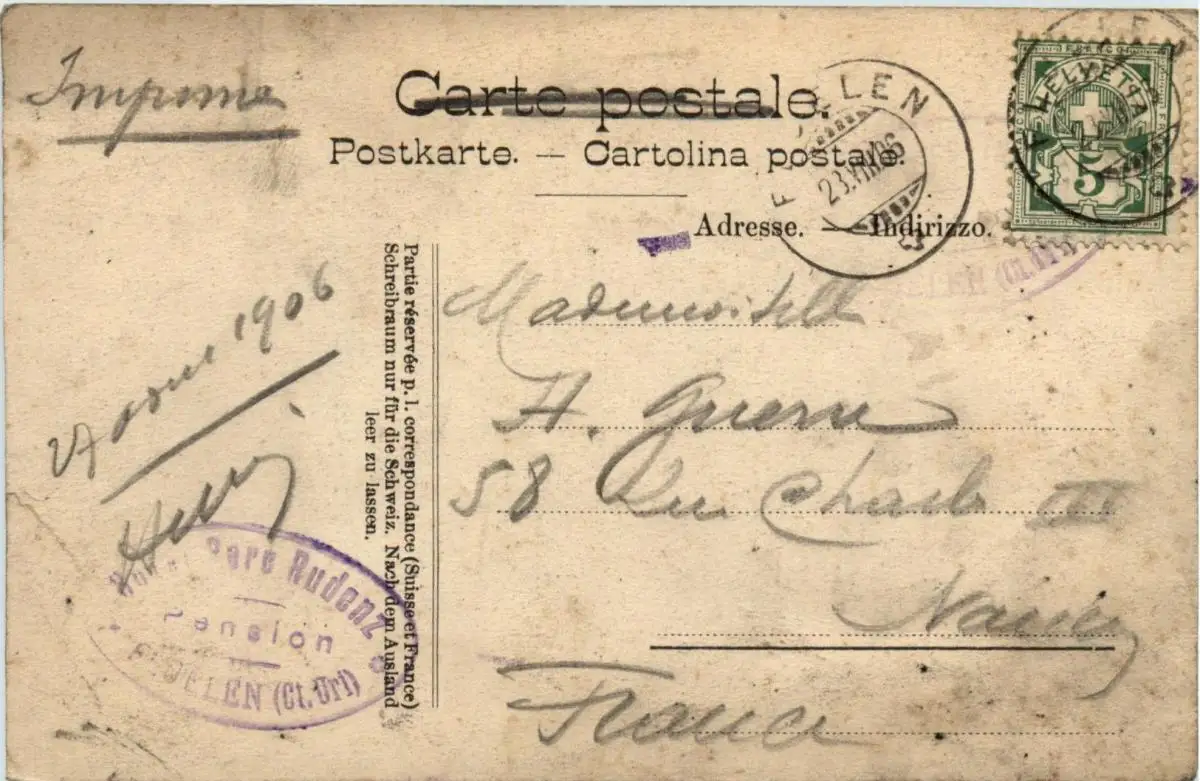 Imprimé
Carte postale.
Postkarte. — Cartolina postale.
Adresse. — Indirizzo.
FLÜELEN
23.VIII.06
FRANCO
HELVETIA
5
Partie réservée p. l. correspondance (Suisse et France)
Schreibraum nur für die Schweiz. Nach dem Ausland
leer zu lassen.
1906
Mademoiselle
H.
58 Rue Charles III
Nancy
France
Rudenz
Pension
FLÜELEN (Ct. Uri)
(Ct. Uri)